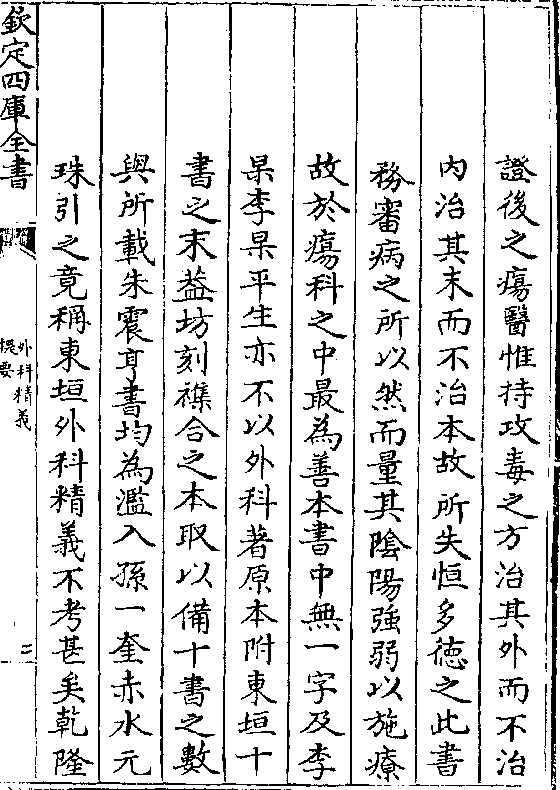 證後之瘍醫惟持攻毒之方治其外而不治
內治其末而不治本故所失恒多德之此書
務審病之所以然而量其陰陽強弱以施療
故於瘍科之中最為善本書中無一字及李
杲李杲平生亦不以外科著原本附東垣十
書之末葢坊刻襍合之本取以備十書之數
與所載朱震亨書均為濫入孫一奎赤水元
珠引之竟稱東垣外科精義不考甚矣乾隆
欽定四庫全書
外科精義
提要
二